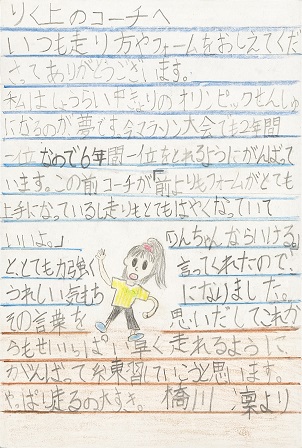 りく上のコーチへ
いつも走り方やフォームをおしえてくだ
さってありがとうございます。
私はしょうらいやきりのオリンピックせんしゅ
になるのが夢です。今マラソン大会でも2年間
一位なので6年間一位をとれるようにがんばって
います。この前コーチが「前よりもフォームがとても
上手になっているし走りもとてもはやくなっていて
いいよ。」「りんちゃんならいける。」
と、とても力強く言ってくれたので、
うれしい気もちになりました。
その言葉を思いだしてこれか
らもせいいっぱい早く走れるように
がんばって練習していこうと思います。
やっぱり走るの大すき。橋川 凜より